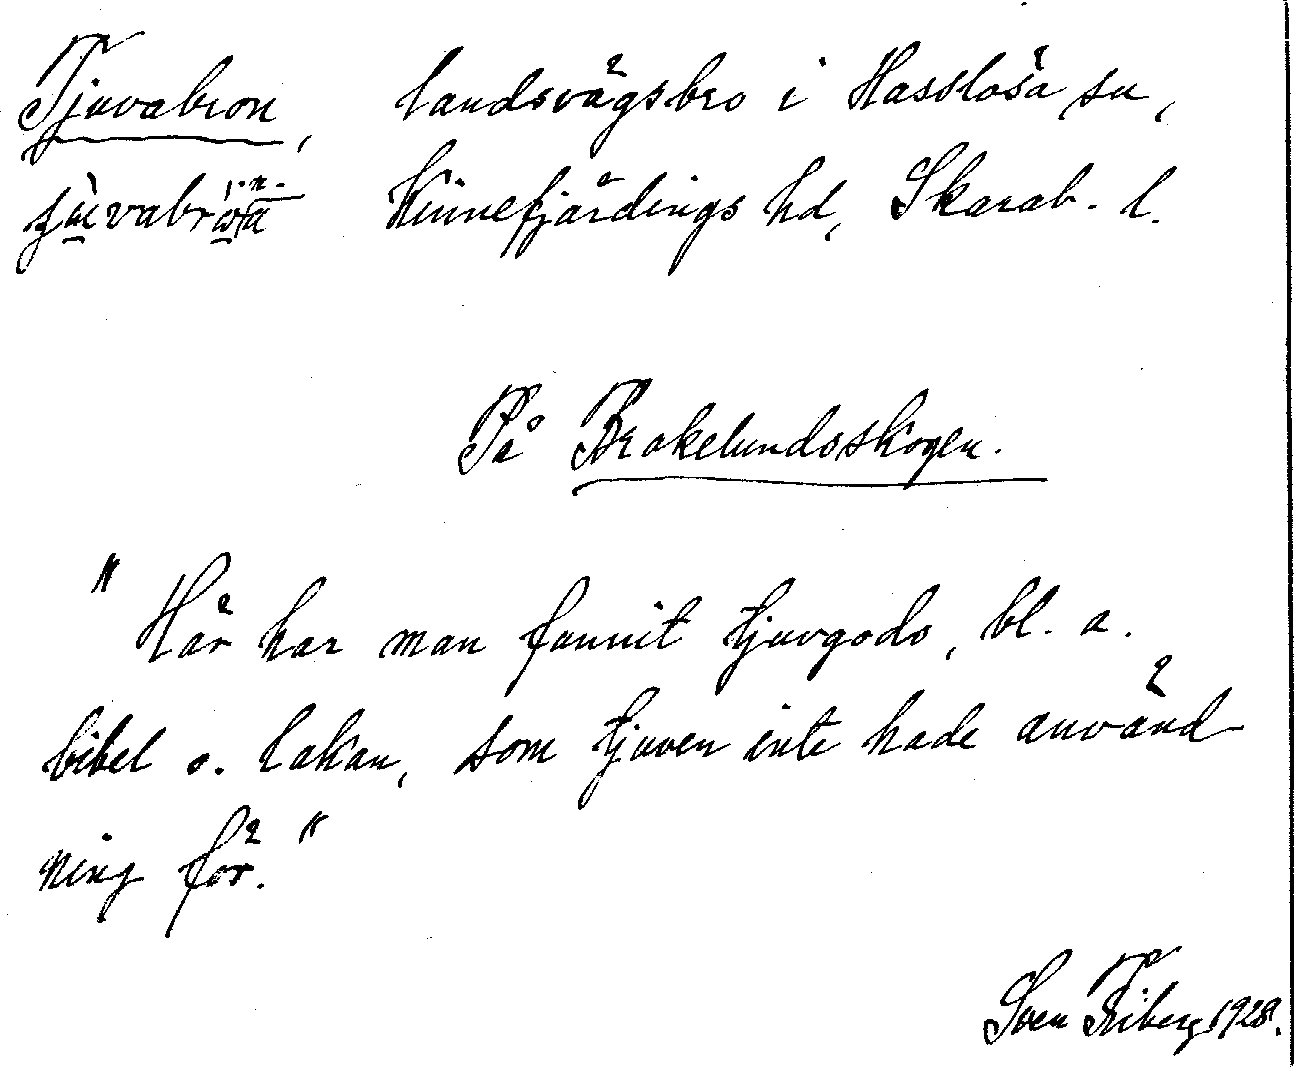 Tjuvabron, landsvägsbro i Hasslösa sn,
Kinnefjärdings hd, Skarab. l.
På Brakelundsskogen.
"Här har man funnit tjuvgods, bl. a.
bibel o. lakan, som tjuven inte hade använd-
ning för."
Sven Friberg 1928.